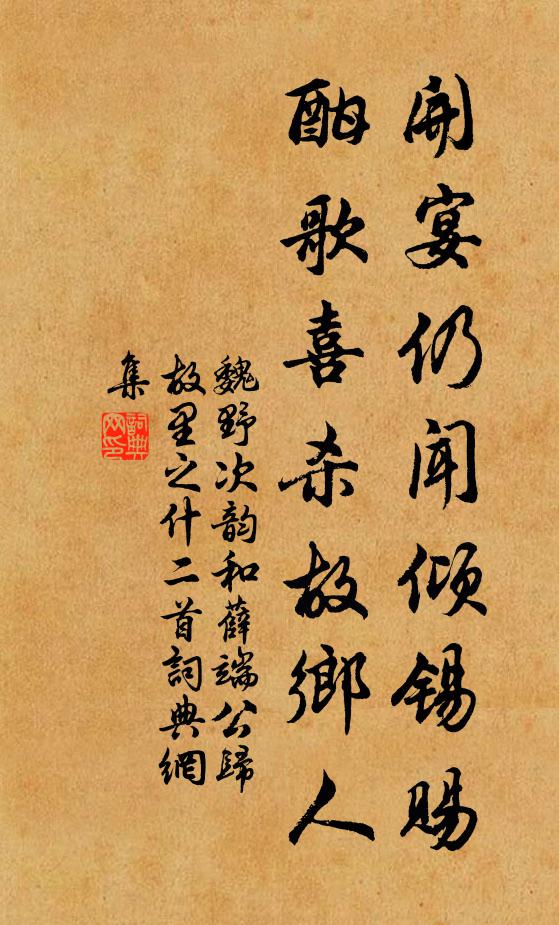 開宴仍聞傾錫賜
酣歌喜杀故鄉人
魏野次韵和薛端公歸
故里之什二首詞典網
集
詞典
网印